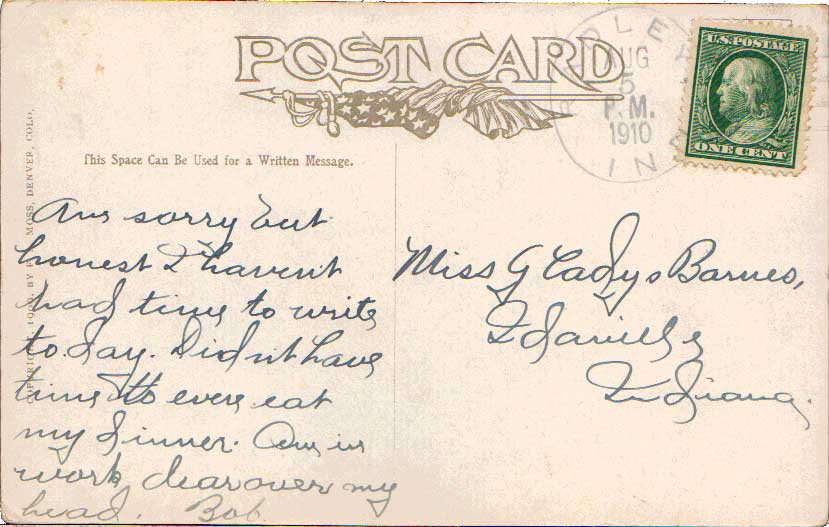 POST CARD
This Space Can Be Used for a Written Message.
AUG
5
P. M.
1910
IND
U.S. POSTAGE
ONE CENT
MOSS, DENVER, COLO.
Am sorry but
honest I havent
had time to write
to-day. Didn't have
time to even eat
my dinner. Am in
work clear over my
head. Bob
Miss Gladys Barnes,
Idaville
Indiana.